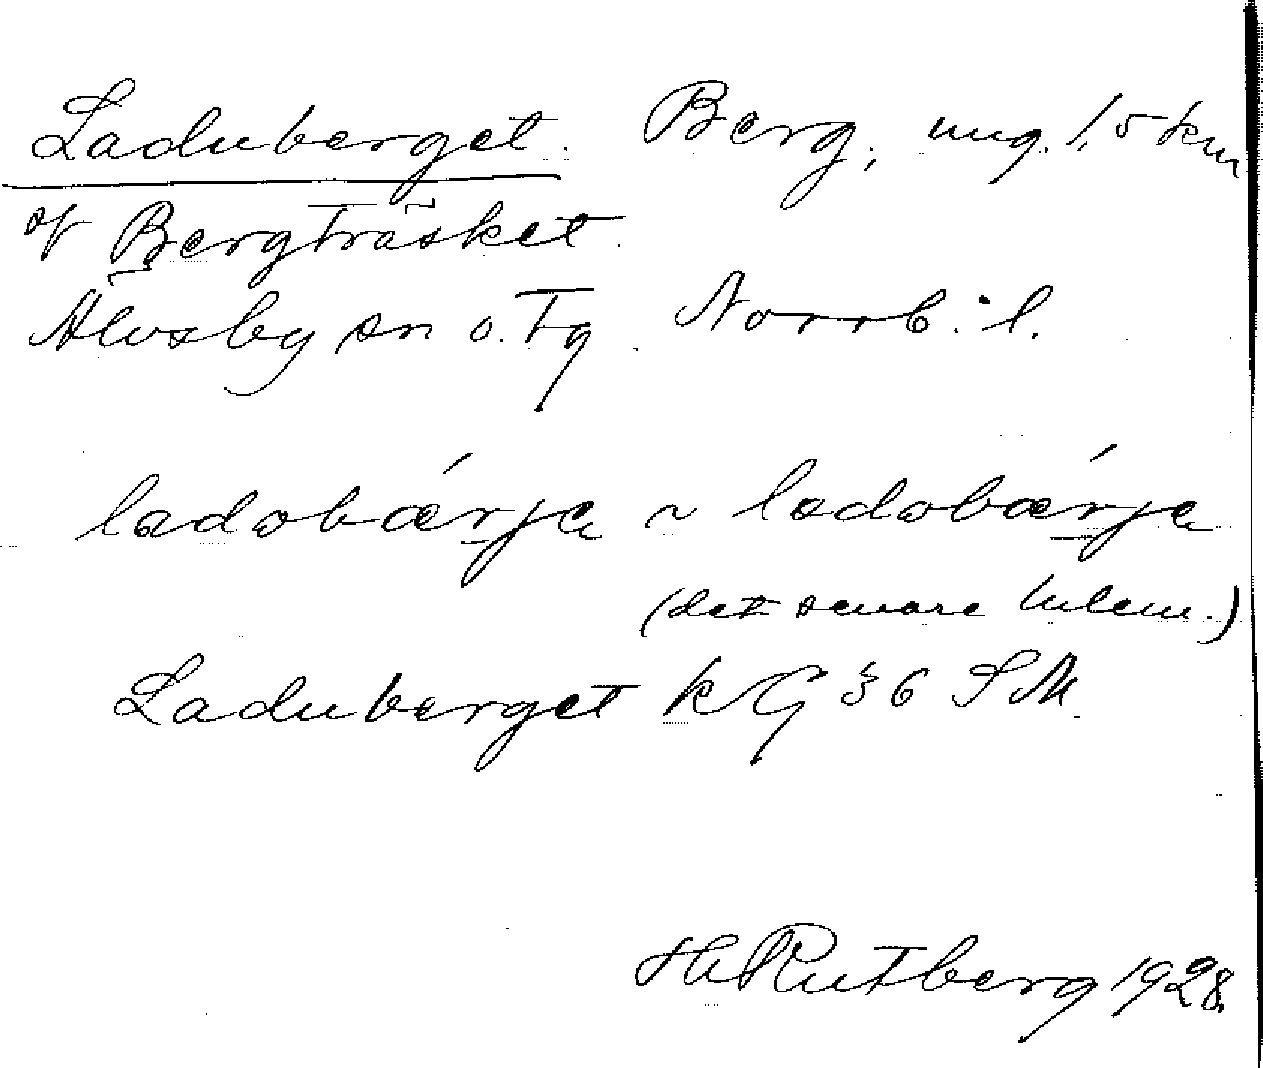 Laduberget. Berg, ung. 1,5 km
of Bergträsket.
Älvsby sn o. Tg. Norrb. l.
ladobærja ~ ladobærja
(det senare Mlem.)
Laduberget kG 36 SM
H Rutberg 1928